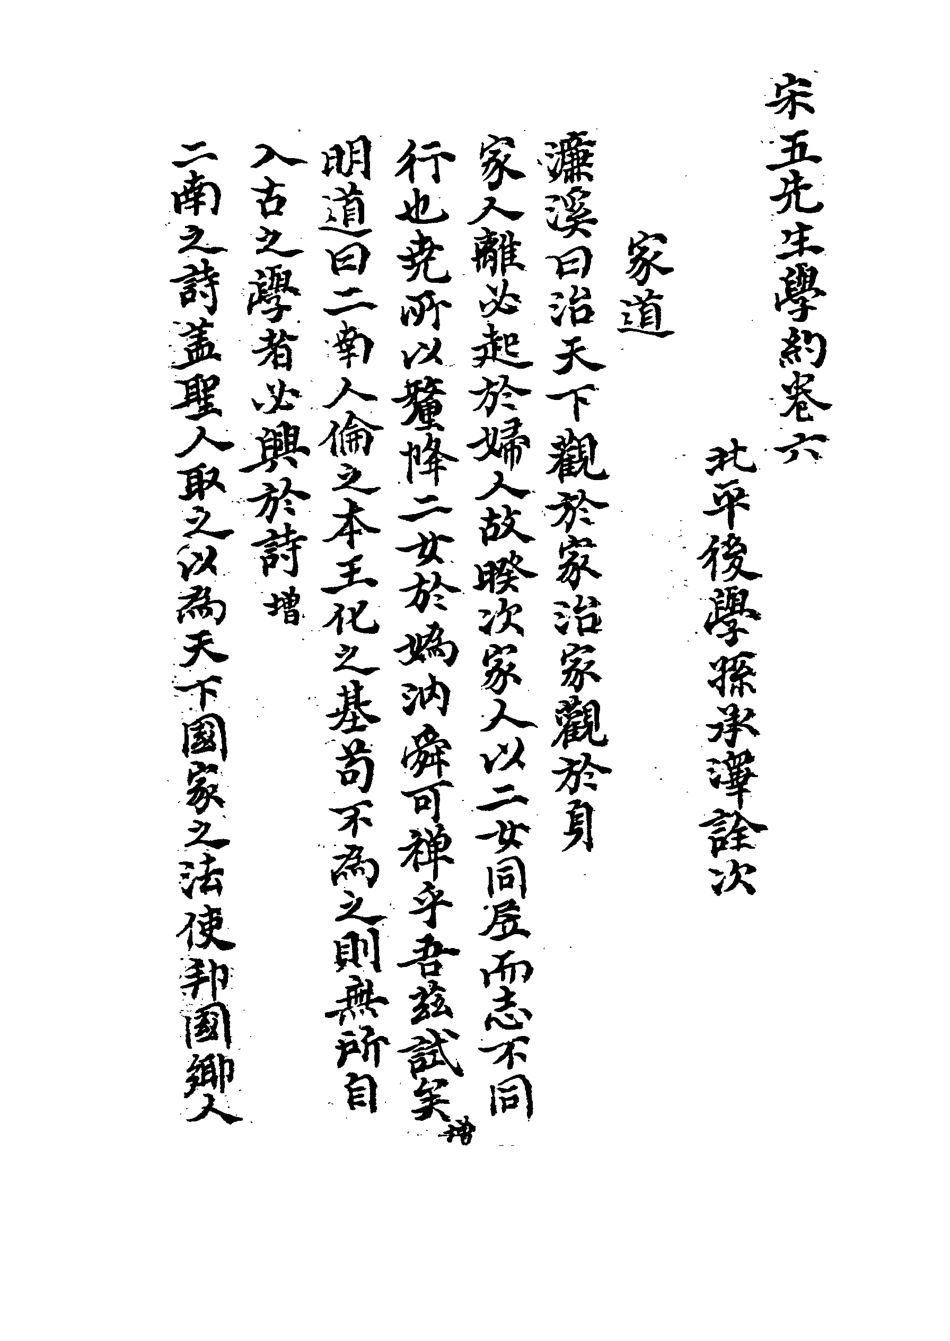 宋五先生學約卷六
北平後學孫承澤詮次
家道
濂溪曰治天下觀於家治家觀於身
家人離必起於婦人故睽次家人以二女同居而志不同
行也堯所以釐降二女於媯汭舜可禪乎吾茲試矣增
明道曰二南人倫之本王化之基苟不為之則無所自
入古之學者必興於詩增
二南之詩蓋聖人取之以為天下國家之法使邦國鄉人